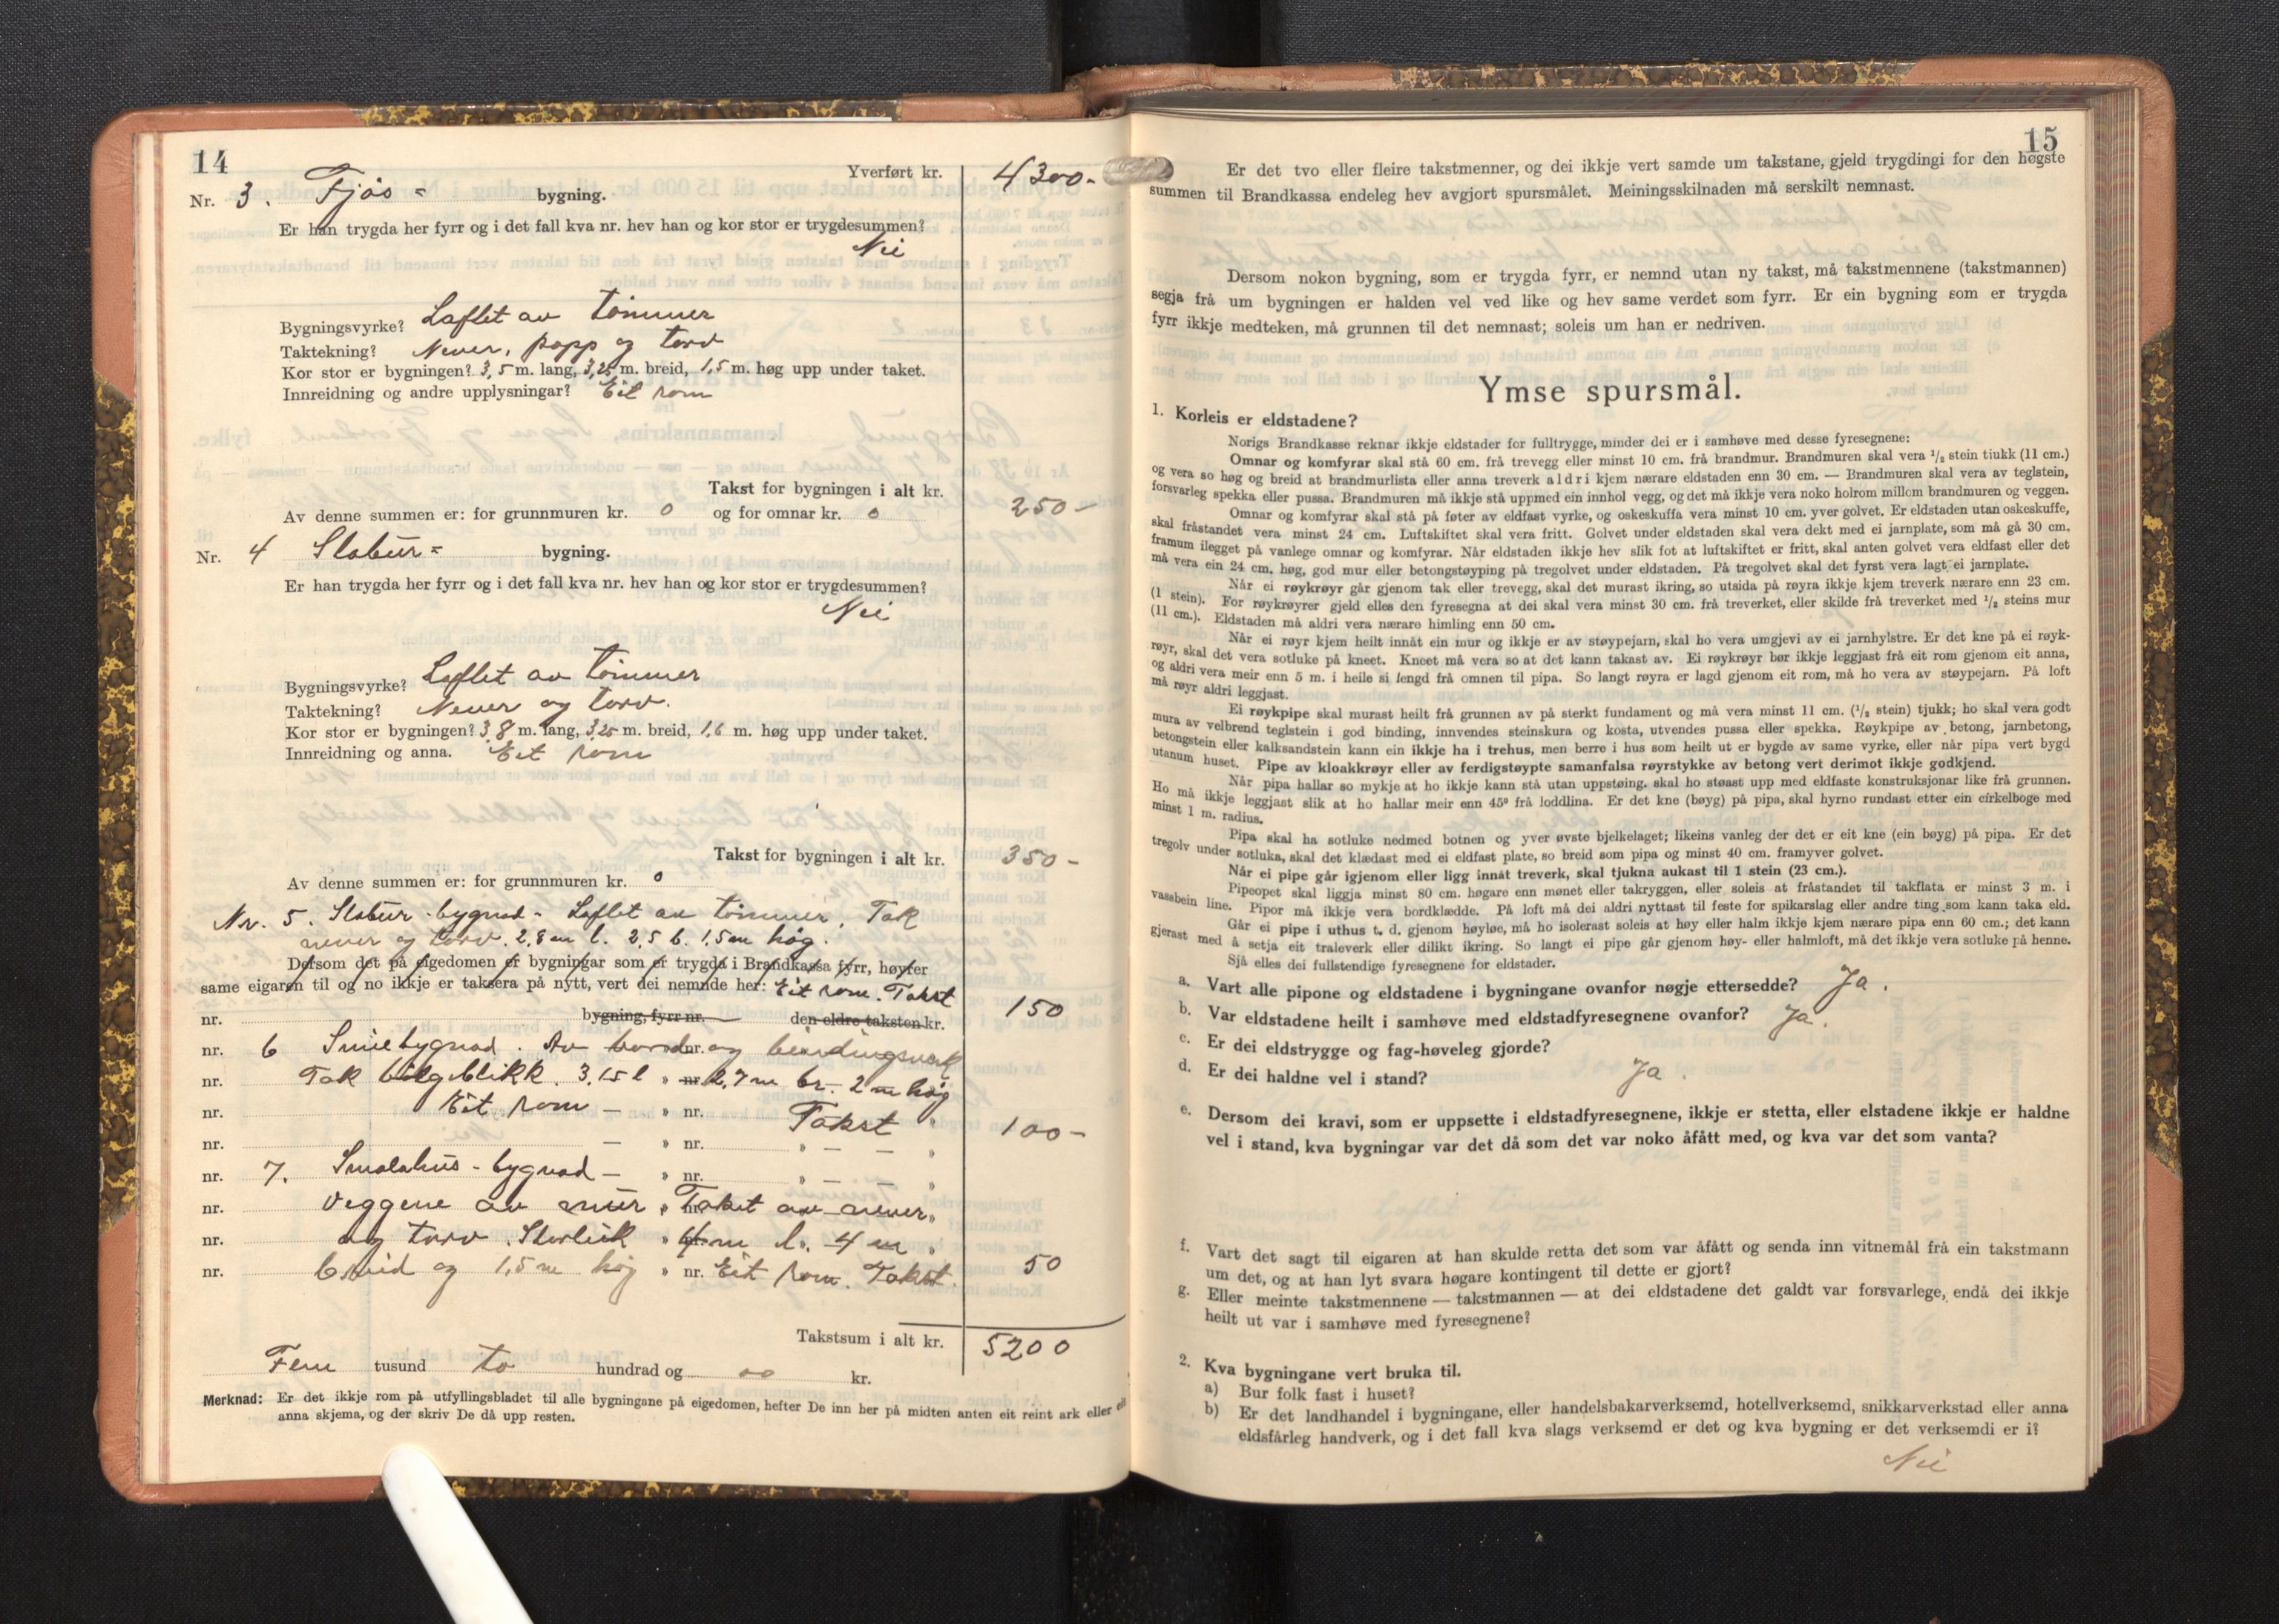 14
Yverført kr. 4300-
Nr. 3. Fjøs - bygning.
Er han trygda her fyrr og i det fall kva nr. hev han og kor stor er trygdesummen?
Nei
Bygningsvyrke? Laflet av tømmer
Taktekning? Never, papp og torv
Kor stor er bygningen? 3,5 m. lang, 3,25 m. breid, 1,5 m. høg upp under taket.
Innreidning og andre upplysningar? Eit rom
Takst for bygningen i alt kr. 250-
Av denne summen er: for grunnmuren kr. 0 og for omnar kr. 0
Nr. 4 Stabur - bygning.
Er han trygda her fyrr og i det fall kva nr. hev han og kor stor er trygdesummen?
Nei
Bygningsvyrke? Laflet av tømmer
Taktekning? Never og torv.
Kor stor er bygningen? 3,8 m. lang, 3,25 m. breid, 1,6 m. høg upp under taket.
Innreidning og anna. Eit rom
Takst for bygningen i alt kr. 350-
Av denne summen er: for grunnmuren kr. 0
Nr. 5. Stabur-bygnad - Laflet av tømmer. Tak
never og torv. 2,8 m l. 2,5 b. 1,5 m høg.
Dersom det på eigedomen er bygningar som er trygda i Brandkassa fyrr, høyrer
same eigaren til og no ikkje er taksera på nytt, vert dei nemnde her: Eit rom. Takst
nr. bygning, fyrr nr. — den eldre taksten kr. 150
nr. 6 Smiebygnad. Av bord nr. og bindingsverk
nr. Tak bølgeblikk. 3,15 l „ nr. 2,7 m br. 2 m høg
nr. Eit rom — „ nr. Takst „
nr. — „ nr. „ — — „ 100-
nr. 7. Smalahus-bygnad — „ nr. „ — — „
nr. Veggene av mur „ nr. Taket av never „
nr. og torv. Storleik „ 4 m l. 4 m „
nr. breid og 1,5 m høg „ nr. Eit rom. Takst. 50
Takstsum i alt kr. 5200
Fem tusund to hundrad og 00 kr.
Merknad: Er det ikkje rom på utfyllingsbladet til alle bygningane på eigedomen, hefter De inn her på midten anten eit reint ark eller eit
anna skjema, og der skriv De då upp resten.
15
Er det tvo eller fleire takstmenner, og dei ikkje vert samde um takstane, gjeld trygdingi for den høgste
summen til Brandkassa endeleg hev avgjort spursmålet. Meiningsskilnaden må serskilt nemnast.
Dersom nokon bygning, som er trygda fyrr, er nemnd utan ny takst, må takstmennene (takstmannen)
segja frå um bygningen er halden vel ved like og hev same verdet som fyrr. Er ein bygning som er trygda
fyrr ikkje medteken, må grunnen til det nemnast; soleis um han er nedriven.
Ymse spursmål.
1. Korleis er eldstadene?
Norigs Brandkasse reknar ikkje eldstader for fulltrygge, minder dei er i samhøve med desse fyresegnene:
Omnar og komfyrar skal stå 60 cm. frå trevegg eller minst 10 cm. frå brandmur. Brandmuren skal vera ½ stein tiukk (11 cm.)
og vera so høg og breid at brandmurlista eller anna treverk aldri kjem nærare eldstaden enn 30 cm. — Brandmuren skal vera av teglstein,
forsvarleg spekka eller pussa. Brandmuren må ikkje stå uppmed ein innhol vegg, og det må ikkje vera noko holrom millom brandmuren og veggen.
Omnar og komfyrar skal stå på føter av eldfast vyrke, og oskeskuffa vera minst 10 cm. yver golvet. Er eldstaden utan oskeskuffe,
skal fråstandet vera minst 24 cm. Luftskiftet skal vera fritt. Golvet under eldstaden skal vera dekt med ei jarnplate, som må gå 30 cm.
framum ilegget på vanlege omnar og komfyrar. Når eldstaden ikkje hev slik fot at luftskiftet er fritt, skal anten golvet vera eldfast eller det
må vera ein 24 cm. høg, god mur eller betongstøyping på tregolvet under eldstaden. På tregolvet skal det fyrst vera lagt ei jarnplate.
Når ei røykrøyr går gjenom tak eller trevegg, skal det murast ikring, so utsida på røyra ikkje kjem treverk nærare enn 23 cm.
(1 stein). For røykrøyrer gjeld elles den fyresegna at dei skal vera minst 30 cm. frå treverket, eller skilde frå treverket med ½ steins mur
(11 cm.). Eldstaden må aldri vera nærare himling enn 50 cm.
Når ei røyr kjem heilt innåt ein mur og ikkje er av støypejarn, skal ho vera umgjevi av ei jarnhylstre. Er det kne på ei røyk-
røyr, skal det vera sotluke på kneet. Kneet må vera so at det kann takast av. Ei røykrøyr bør ikkje leggjast frå eit rom gjenom eit anna,
og aldri vera meir enn 5 m. i heile si lengd frå omnen til pipa. So langt røyra er lagd gjenom eit rom, må ho vera av støypejarn. På loft
må røyr aldri leggjast.
Ei røykpipe skal murast heilt frå grunnen av på sterkt fundament og må vera minst 11 cm. (½ stein) tjukk; ho skal vera godt
mura av velbrend teglstein i god binding, innvendes steinskura og kosta, utvendes pussa eller spekka. Røykpipe av betong, jarnbetong,
betongstein eller kalksandstein kann ein ikkje ha i trehus, men berre i hus som heilt ut er bygde av same vyrke, eller når pipa vert bygd
utanum huset. Pipe av kloakkrøyr eller av ferdigstøypte samanfalsa røyrstykke av betong vert derimot ikkje godkjend.
Når pipa hallar so mykje at ho ikkje kann stå utan uppstøing, skal ho støast upp med eldfaste konstruksjonar like frå grunnen.
Ho må ikkje leggjast slik at ho hallar meir enn 45° frå loddlina. Er det kne (bøyg) på pipa, skal hyrno rundast etter ein cirkelboge med
minst 1 m. radius.
Pipa skal ha sotluke nedmed botnen og yver øvste bjelkelaget; likeins vanleg der det er eit kne (ein bøyg) på pipa. Er det
tregolv under sotluka, skal det klædast med ei eldfast plate, so breid som pipa og minst 40 cm. framyver golvet.
Når ei pipe går igjenom eller ligg innåt treverk, skal tjukna aukast til 1 stein (23 cm.).
Pipeopet skal liggja minst 80 cm. høgare enn mønet eller takryggen, eller soleis at fråstandet til takflata er minst 3 m. i
vassbein line. Pipor må ikkje vera bordklædde. På loft må dei aldri nyttast til feste for spikarslag eller andre ting som kann taka eld.
Går ei pipe i uthus t. d. gjenom høyløe, må ho isolerast soleis at høy eller halm ikkje kjem nærare pipa enn 60 cm.; det kann
gjerast med å setja eit traleverk eller dilikt ikring. So langt ei pipe går gjenom høy- eller halmloft, må det ikkje vera sotluke på henne.
Sjå elles dei fullstendige fyresegnene for eldstader.
a. Vart alle pipone og eldstadene i bygningane ovanfor nøgje ettersedde? Ja.
b. Var eldstadene heilt i samhøve med eldstadfyresegnene ovanfor? Ja.
c. Er dei eldstrygge og fag-høveleg gjorde?
d. Er dei haldne vel i stand? Ja.
e. Dersom dei kravi, som er uppsette i eldstadfyresegnene, ikkje er stetta, eller elstadene ikkje er haldne
vel i stand, kva bygningar var det då som det var noko åfått med, og kva var det som vanta?
f. Vart det sagt til eigaren at han skulde retta det som var åfått og senda inn vitnemål frå ein takstmann
um det, og at han lyt svara høgare kontingent til dette er gjort?
g. Eller meinte takstmennene — takstmannen — at dei eldstadene det galdt var forsvarlege, endå dei ikkje
heilt ut var i samhøve med fyresegnene?
2. Kva bygningane vert bruka til.
a) Bur folk fast i huset?
b) Er det landhandel i bygningane, eller handelsbakarverksemd, hotellverksemd, snikkarverkstad eller anna
eldsfårleg handverk, og i det fall kva slags verksemd er det og kva bygning er det verksemdi er i?
Nei